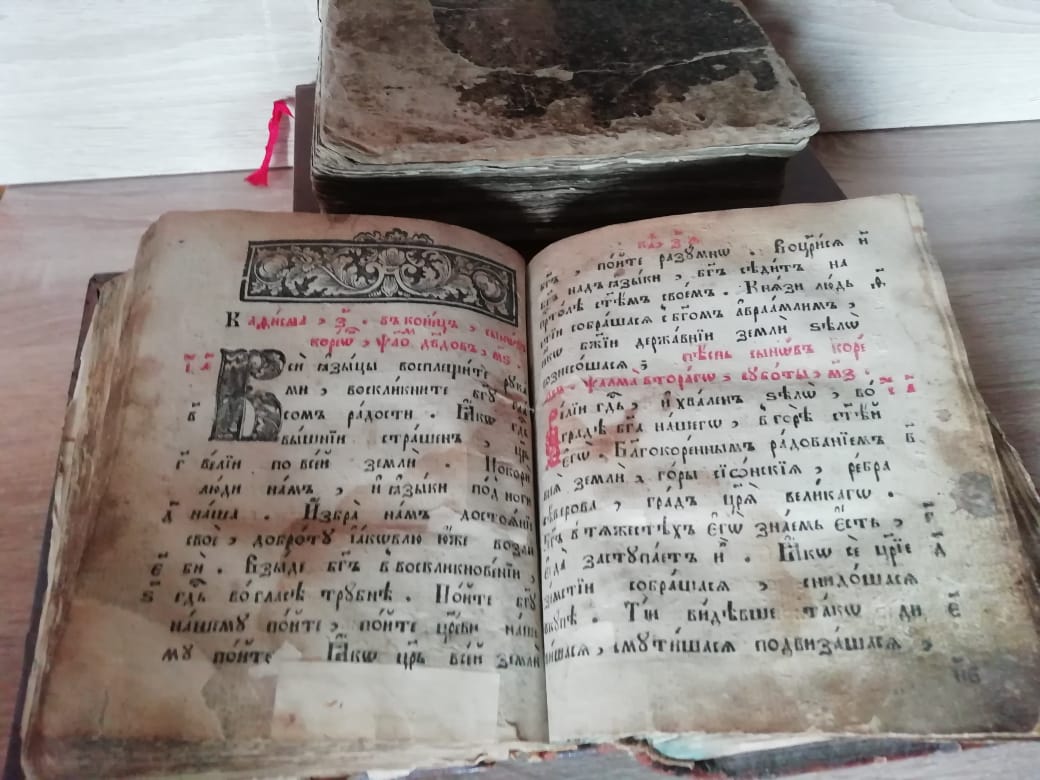 Каѳи́сма, з҃. въ коне́цъ, сыно́въ
коре́ѡ, ѱало́ дв҃дов, м҃ѕ
а҃ Вси́ ꙗ҆зы́цы восплещи́те рука́
ми, воскли́кните бг҃у гла́
в҃ сомъ ра́дости. Ꙗ҆́кѡ гдⷭ҇ь
вы́шнїи стра́шенъ, цр҃ь
г҃ ве́лїи по все́й землѝ. Покорѝ
лю́ди на́мъ, и҆ ꙗ҆зы́ки под но́ги
д҃ на́ша. И҆збра̀ на́мъ достоѧ́нїе
своѐ, добро́ту і҆а́кѡвлю ю҆́же возлю
є҃ бѝ. Взы́де бг҃ъ в воскликнове́нїи,
ѕ҃ гдⷭ҇ь во гла́сѣ тру́бнѣ. По́йте бг҃у
на́шему по́йте, по́йте цр҃еви на́ше
му по́йте Ꙗ҆́кѡ цр҃ь все́й землѝ
ка҃, з҃
бг҃ъ, по́йте разу́мнѡ. Воцр҃и́сѧ и҃
бг҃ъ надъ ꙗ҆зы́ки, бг҃ъ сѣди́тъ на
прⷭ҇то́лѣ ст҃ѣ́мъ свое́мъ. Кнѧ́зи лю́дь ѳ҃
стїи собра́шасѧ с бг҃омъ а҆враа́млимъ,
ꙗ҆́кѡ бж҃їи держа́внїи землѝ ѕѣлѡ̀
вознесо́шасѧ;
пѣ́снь сыно́въ коре́
ѱалма̀ втора́гѡ, суббо́ты, м҃з.
Ве́лїи гдⷭ҇ь, и҆ хва́ленъ ѕѣлѡ̀, во а҃
гра́дѣ бг҃а на́шегѡ, в горѣ̀ ст҃ѣ́й
є҆гѡ̀. Бл҃гокоре́ннымъ ра́дованїемъ в҃
всеѧ̀ землѝ, го́ры сїѡ́нскїѧ, ре́бра
сѣ́верова, гра́дъ цр҃ѧ̀ вели́кагѡ.
Бг҃ъ в тѧ́жестехъ є҆гѡ̀ зна́емь є҆́сть, г҃
є҆гда̀ заступа́етъ и҆̀. Ꙗ҆́кѡ сѐ цр҃їе д҃
зе́мстїи собра́шасѧ, снидо́шасѧ
вку́пѣ. Ті́и ви́дѣвше та́кѡ ди є҃
ви́шасѧ, смути́шасѧ подвиза́шасѧ,